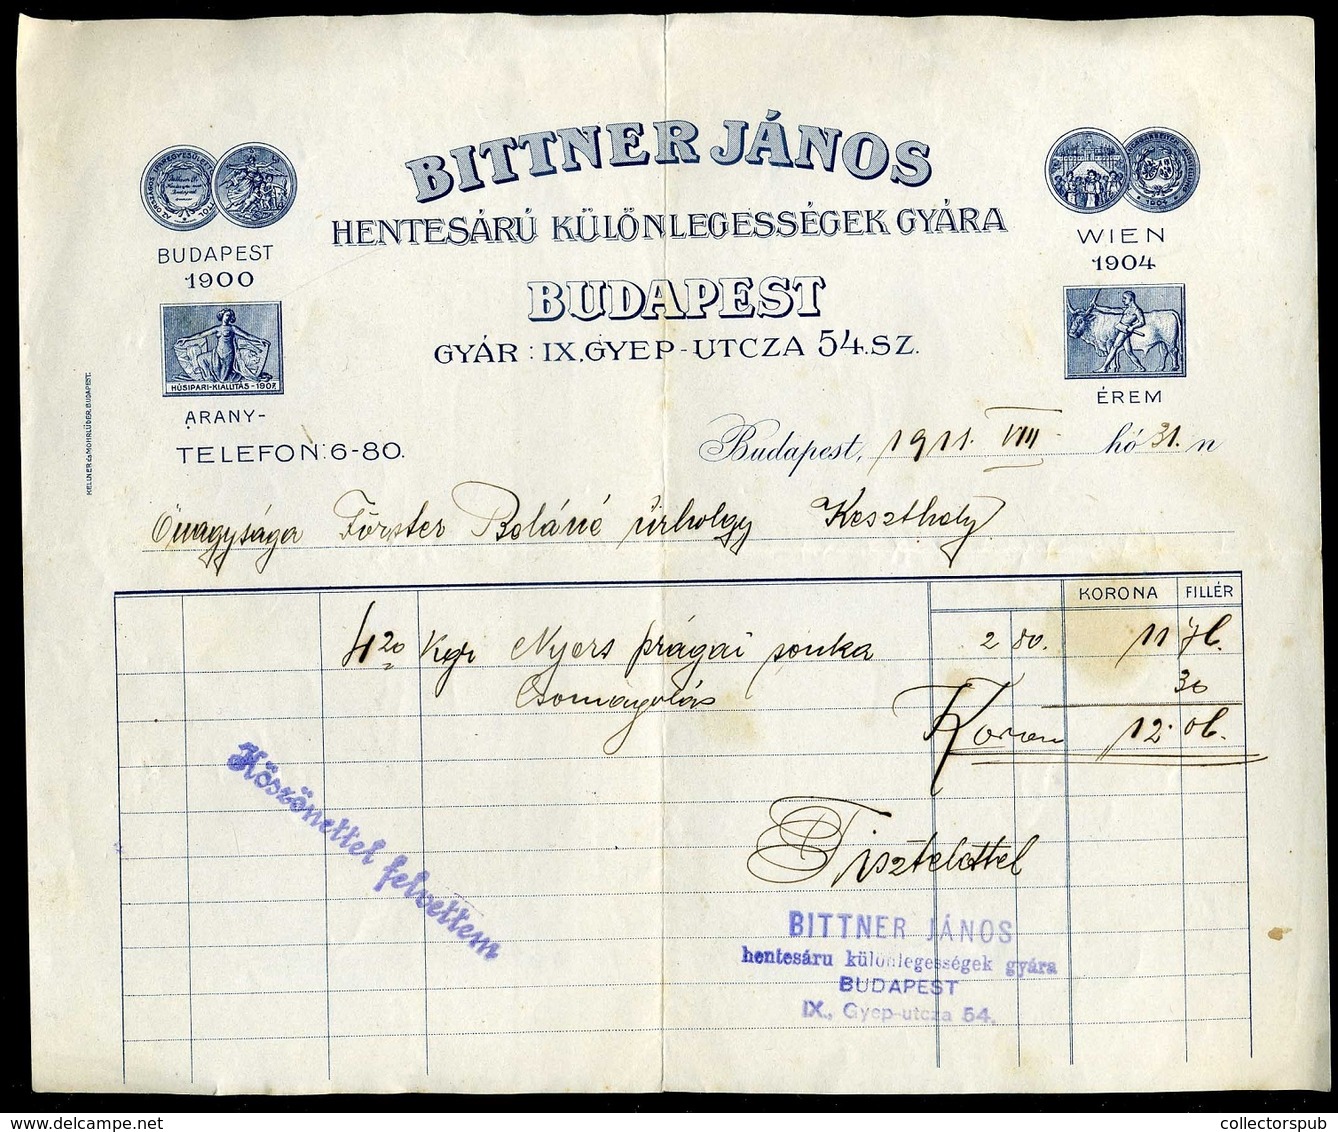 BITTNER JÁNOS
HENTESÁRÚ KÜLÖNLEGESSÉGEK GYÁRA
BUDAPEST
GYÁR: IX. GYEP-UTCZA 54. SZ.
BUDAPEST
1900
HÚSIPARI-KIÁLLITÁS-1907.
ARANY-
TELEFON: 6-80.
WIEN
1904
1904
ÉREM
KELLNER és MOHRLÜDER, BUDAPEST.
Budapest, 1911. VIII hó 31. n
Őnagysága Förster úrhölgy Keszthely
KORONA FILLÉR
4 20 Kgr Nyers prágai sonka 2 80. 11 76.
Csomagolás 30
Korona 12.06.
Köszönettel felvettem
Tisztelettel
BITTNER JÁNOS
hentesáru különlegességek gyára
BUDAPEST
IX., Gyep-utcza 54.
delcampe.net
collectorspub